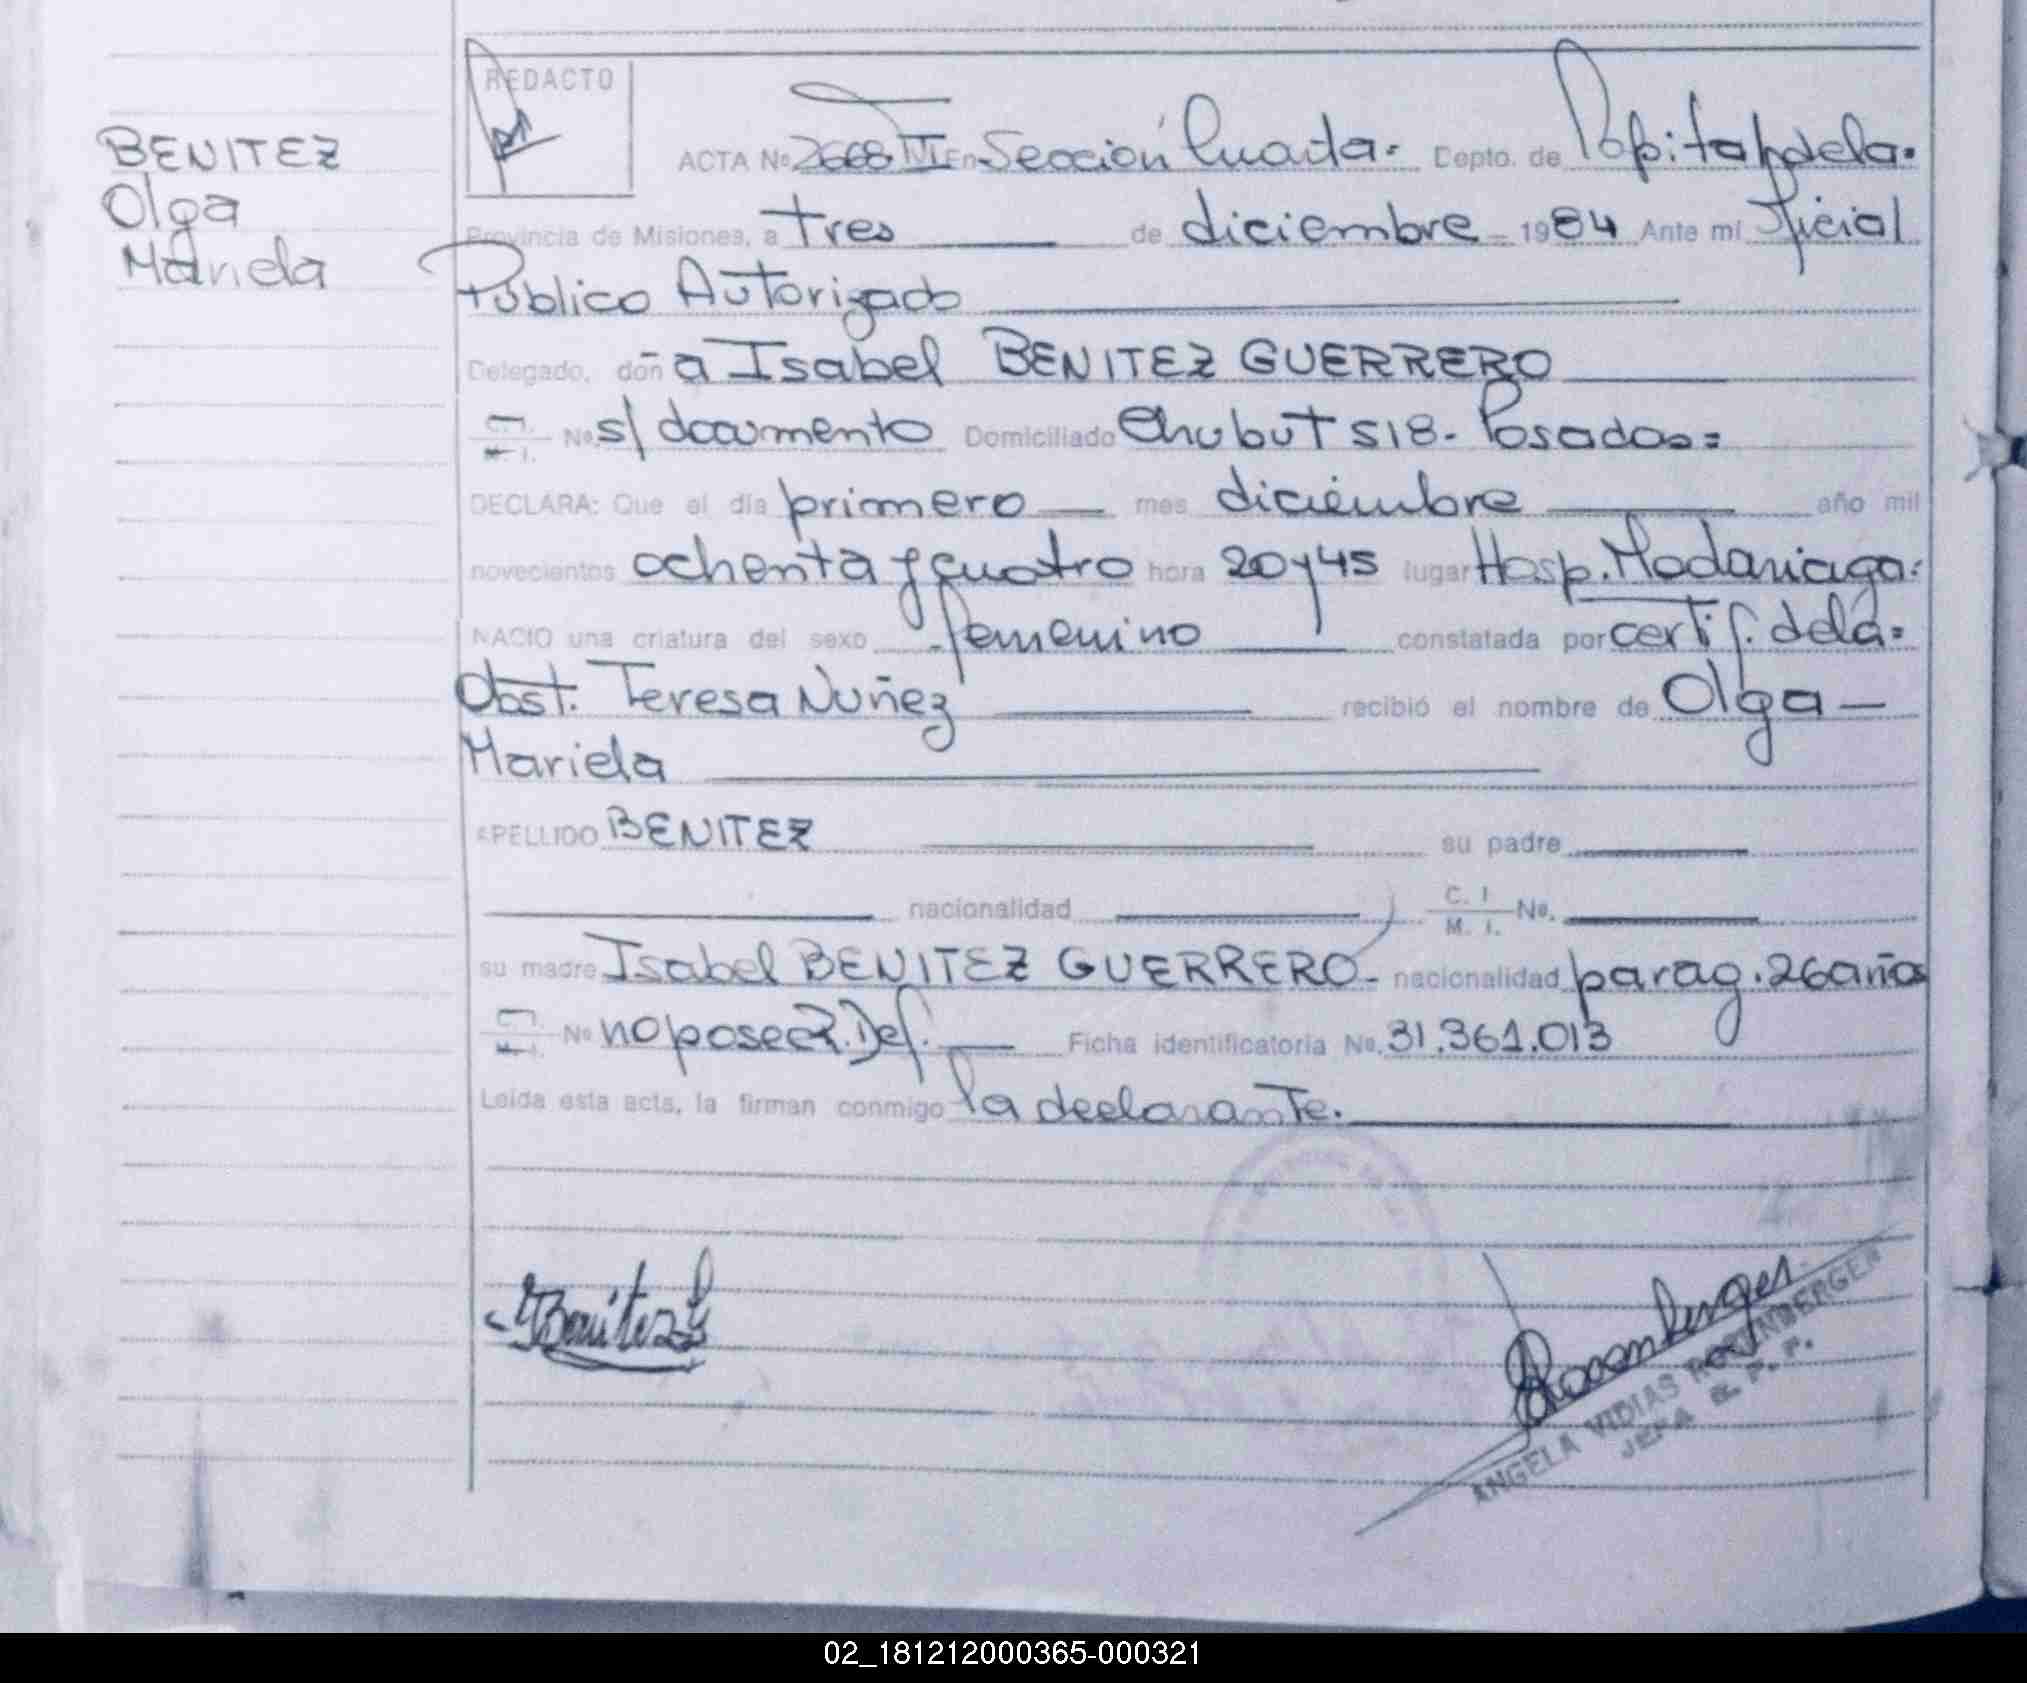 REDACTO
BENITEZ
Olga
Mariela
ACTA No. 2668 En Sección Cuarta. Depto. de Capital, de la.
Provincia de Misiones, a tres de diciembre 1984 Ante mí Oficial
Público Autorizado
Delegado, doña Isabel BENITEZ GUERRERO
C.I. M.I. No. s/ documento Domiciliado Chubut 518. Posadas=
DECLARA: Que el día primero mes diciembre año mil
novecientos ochenta y cuatro hora 20 y 45 lugar Hosp. Madariaga.
NACIO una criatura del sexo femenino constatada por certif. de la=
Obst. Teresa Nuñez recibió el nombre de Olga
Mariela
APELLIDO BENITEZ su padre
nacionalidad C. I. M. I. No.
su madre Isabel BENITEZ GUERRERO. nacionalidad parag. 26 años
C.I. M.I. No no posee R. Def. Ficha identificatoria No. 31.361.013
Leída esta acta, la firman conmigo la declarante.
Benitez G
Rosenberger
ANGELA VIDIAS ROSENBERGER
JEFA R. P. P.
02_181212000365-000321